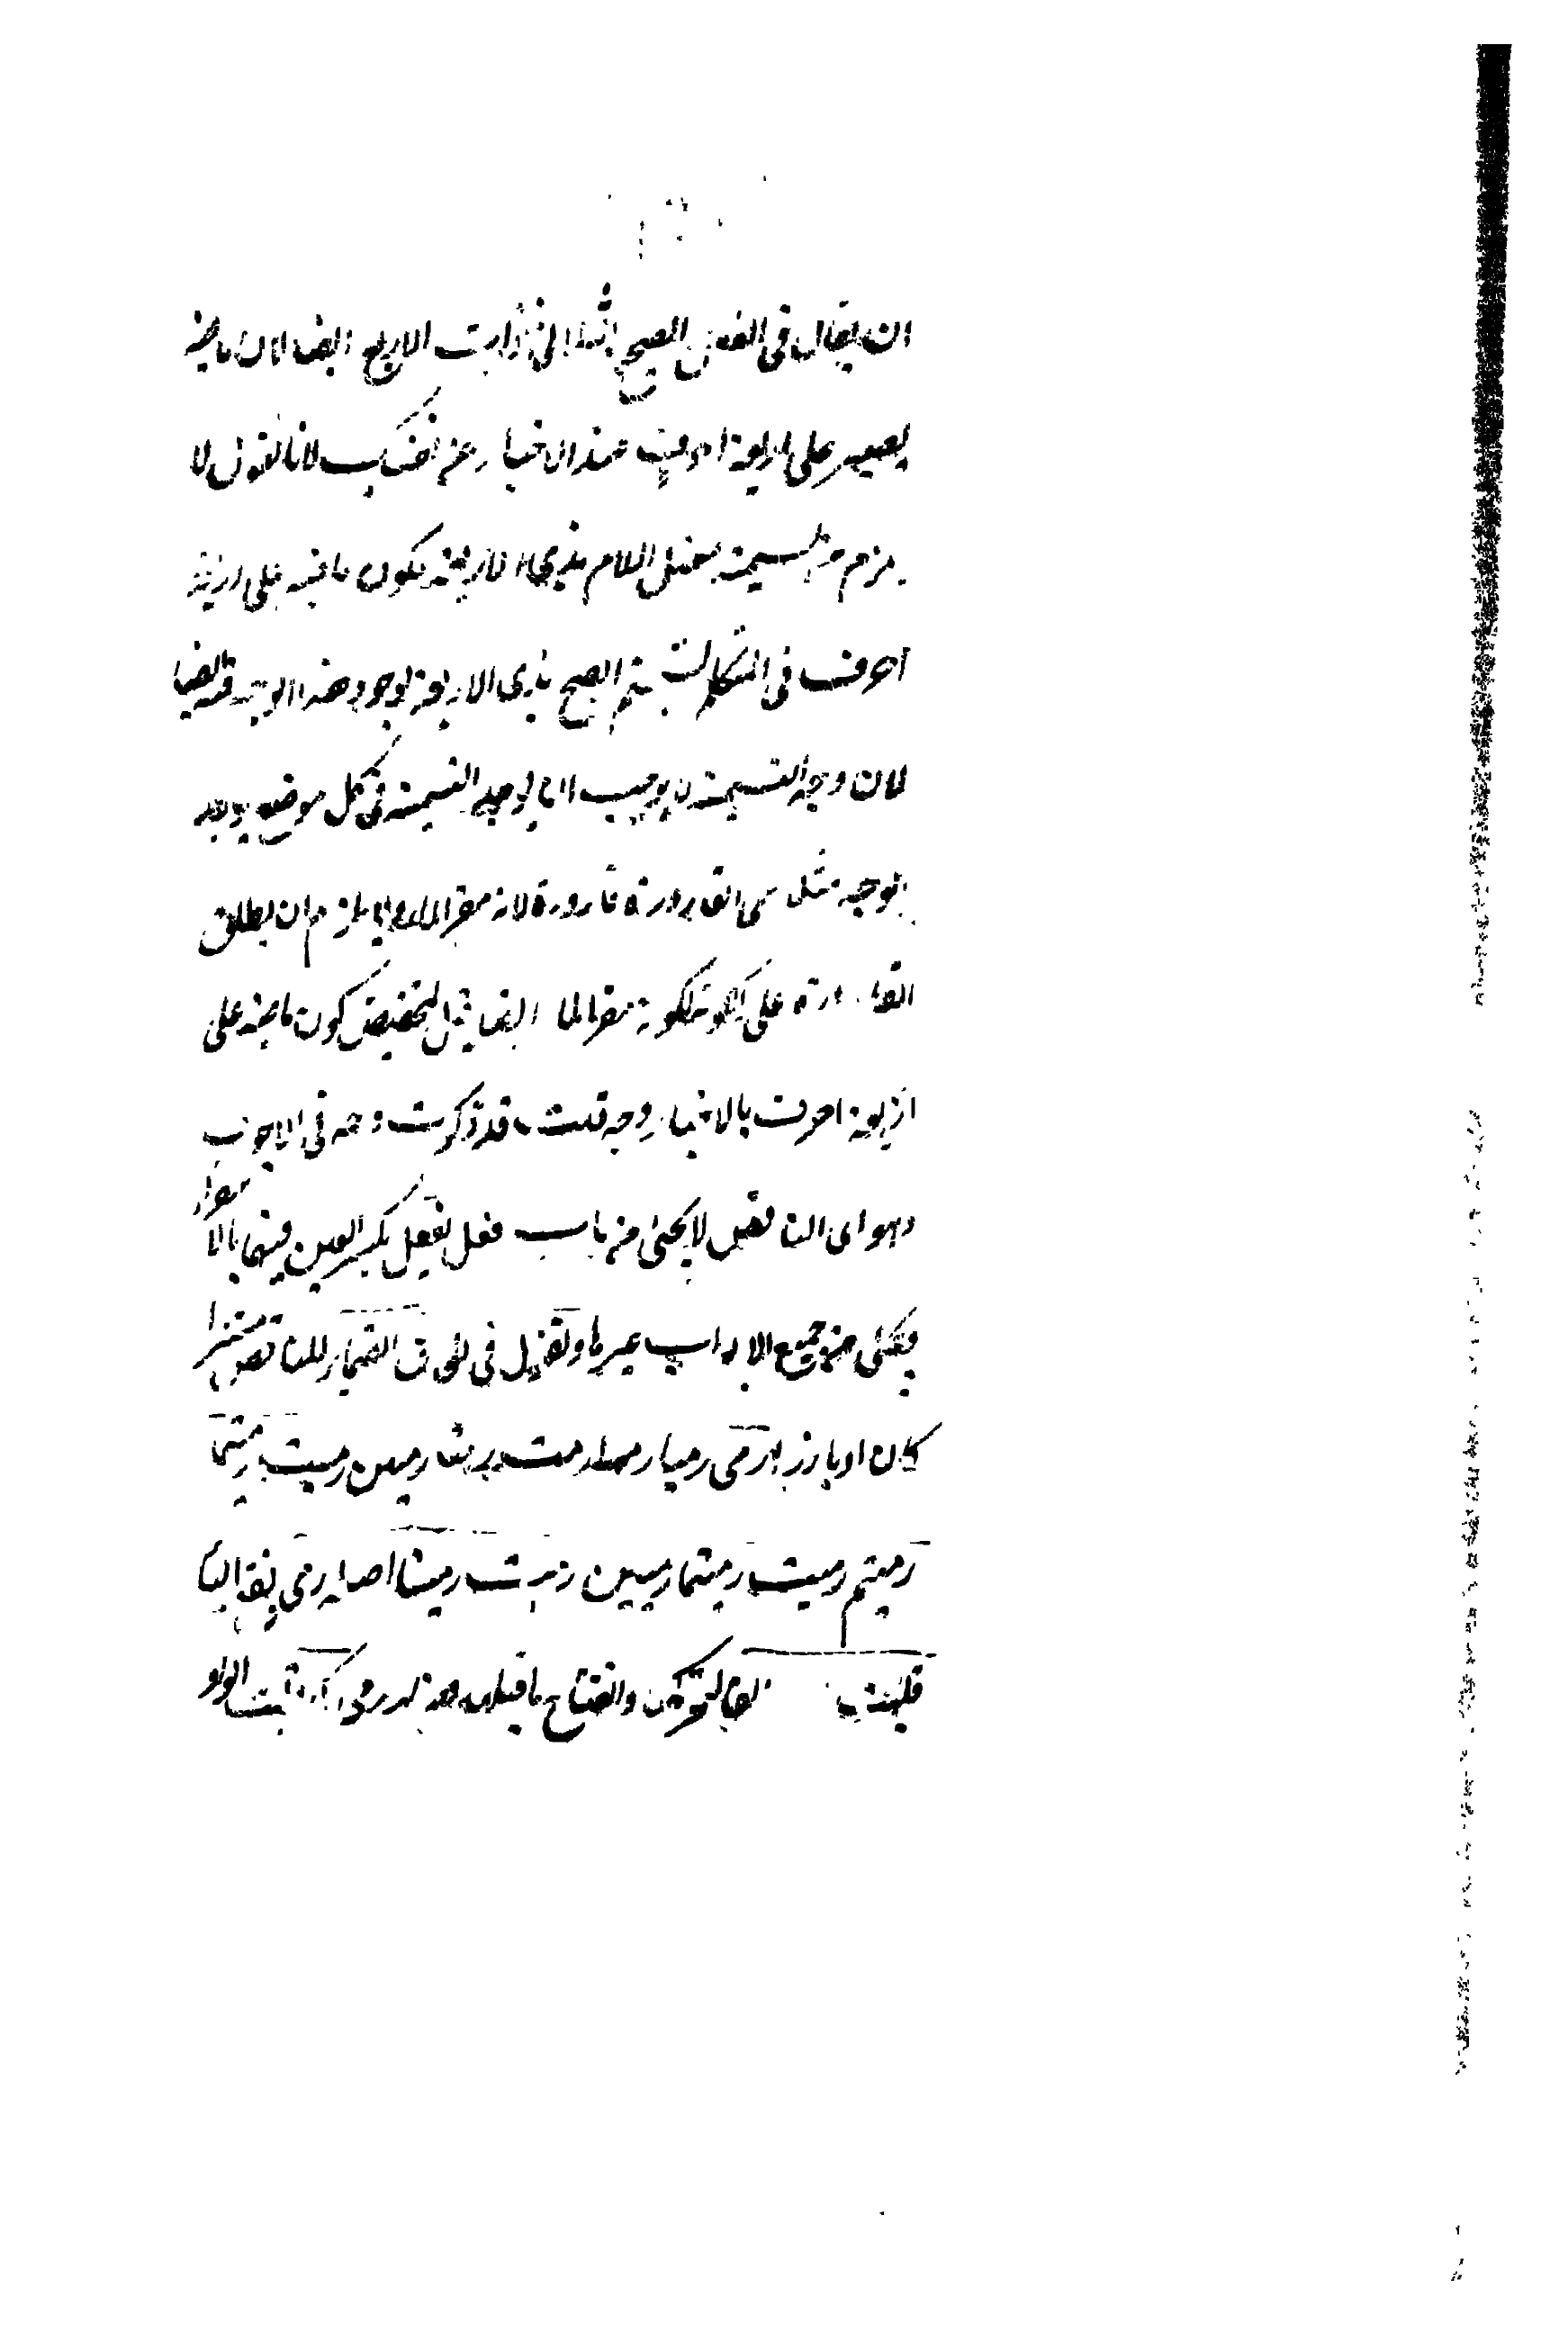 ان يقال في الفعل الصحيح الثلاثي ذات الاربع ايضا لان ماضيه
يصير على اربعة احرف عند الاخبار عن نفسك لانا نقول لا
يلزم من تسمية معتل اللام بذي الاربعة لكون ماضيه على اربعة
احرف في المتكلم تسمية الصحيح بذى الاربعة لوجود هذا الوجه فيه ايضا
لان وجه التسمية لا يوجب ان يوجد التسمية في كل موضع يوجد
الوجه مثل سمى القارورة قارورة لانه مقر الماء ولا يلزم ان يطلق
القارورة على الكوز لكونه مقرا لما ايضا لتخصيص كون ماضيه على
اربعة احرف بالاخبار وجه قلت قد ذكرت وجهه في الاجوف
وهو اى الناقص لا يجئ من باب فعل يفعل بكسر العين فيهما بالاستقراء
ويجئ من جميع الابواب غيرها وتقول في لحوق الضمائر للناقص مستترا
كان او بارزا رمى رميا رموا رمت رمتا رمين رميت رميتما
رميتم رميت رميتما رميتن رميت رمينا اصل رمى رمي بفتح الياء
قلبت الفا لتحركها وانفتاح ما قبلها الواو